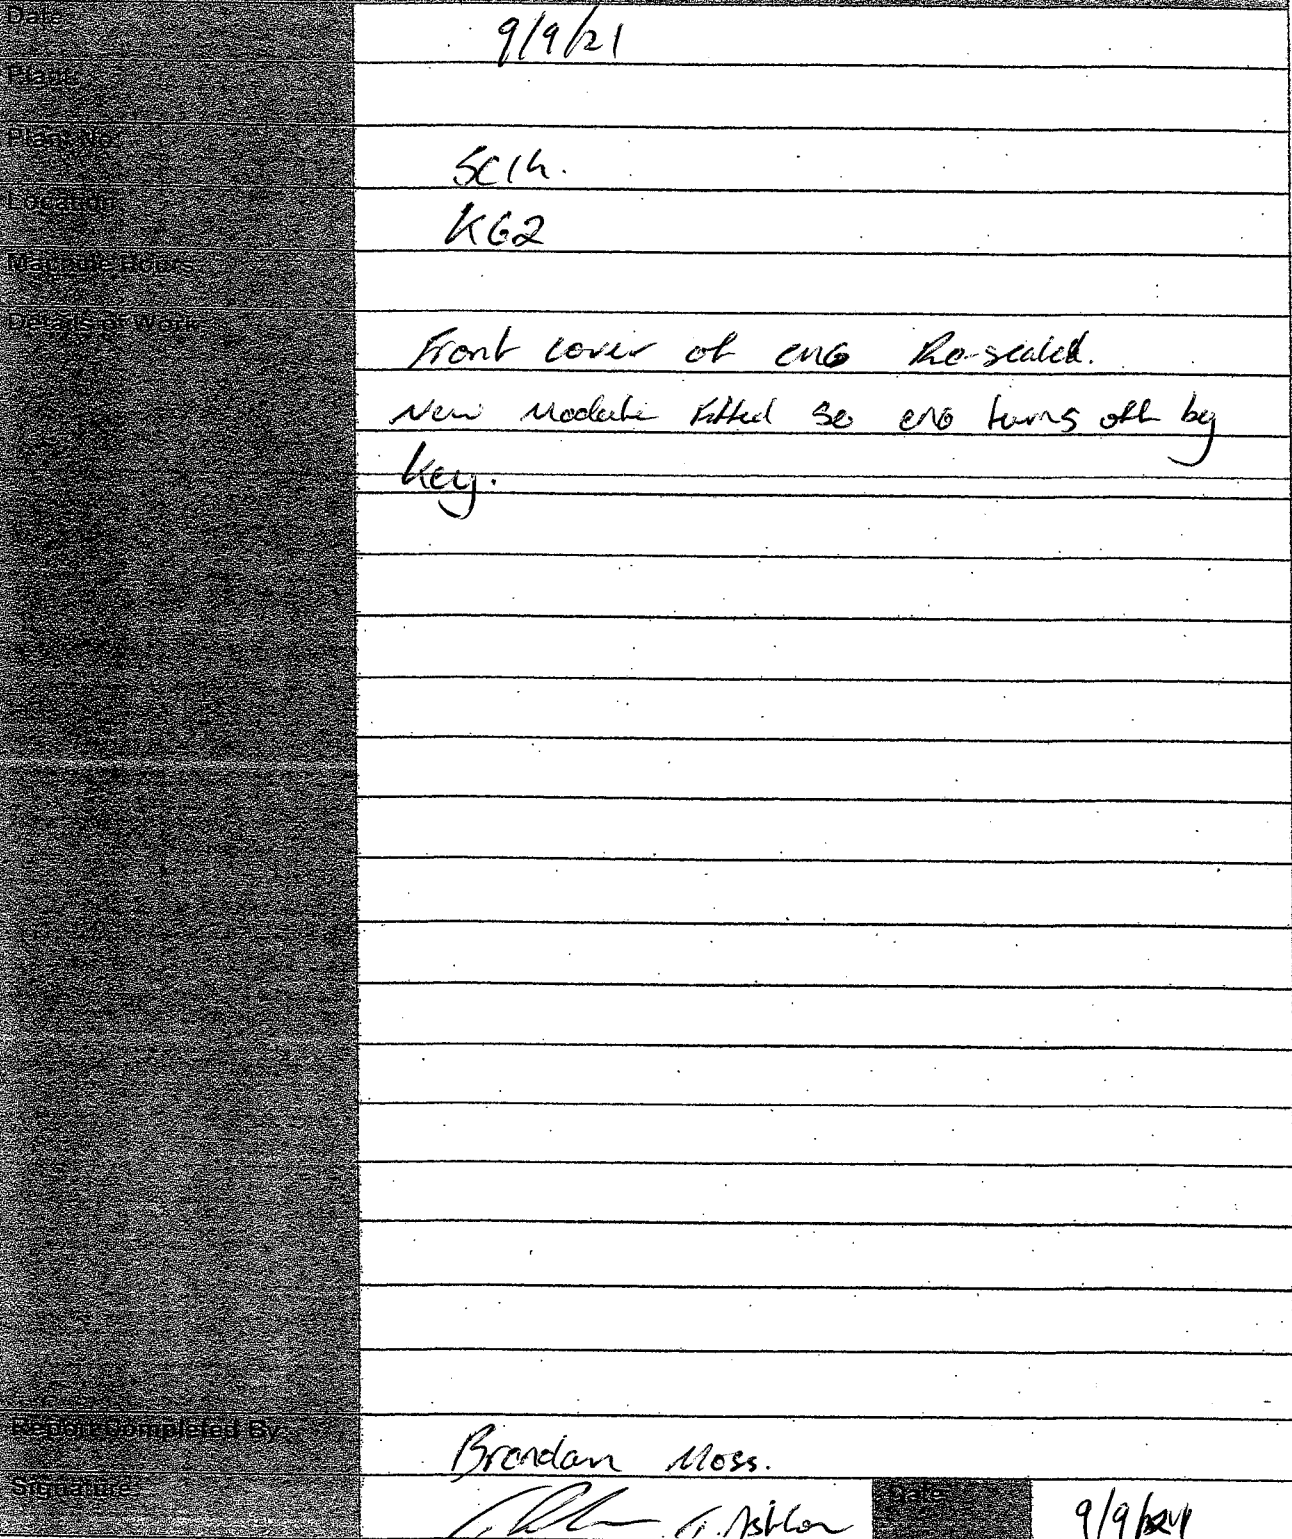 Date: 9/9/21
Plant:
Plant No:
SC14.
Location:
KG2
Machine Hours:
Details of Work:
Front cover of eng Re-sealed.
New Module fitted so eng turns off by
Key.
Report Completed By:
Brendan Moss.
Signature: T. Ashton Date: 9/9/21